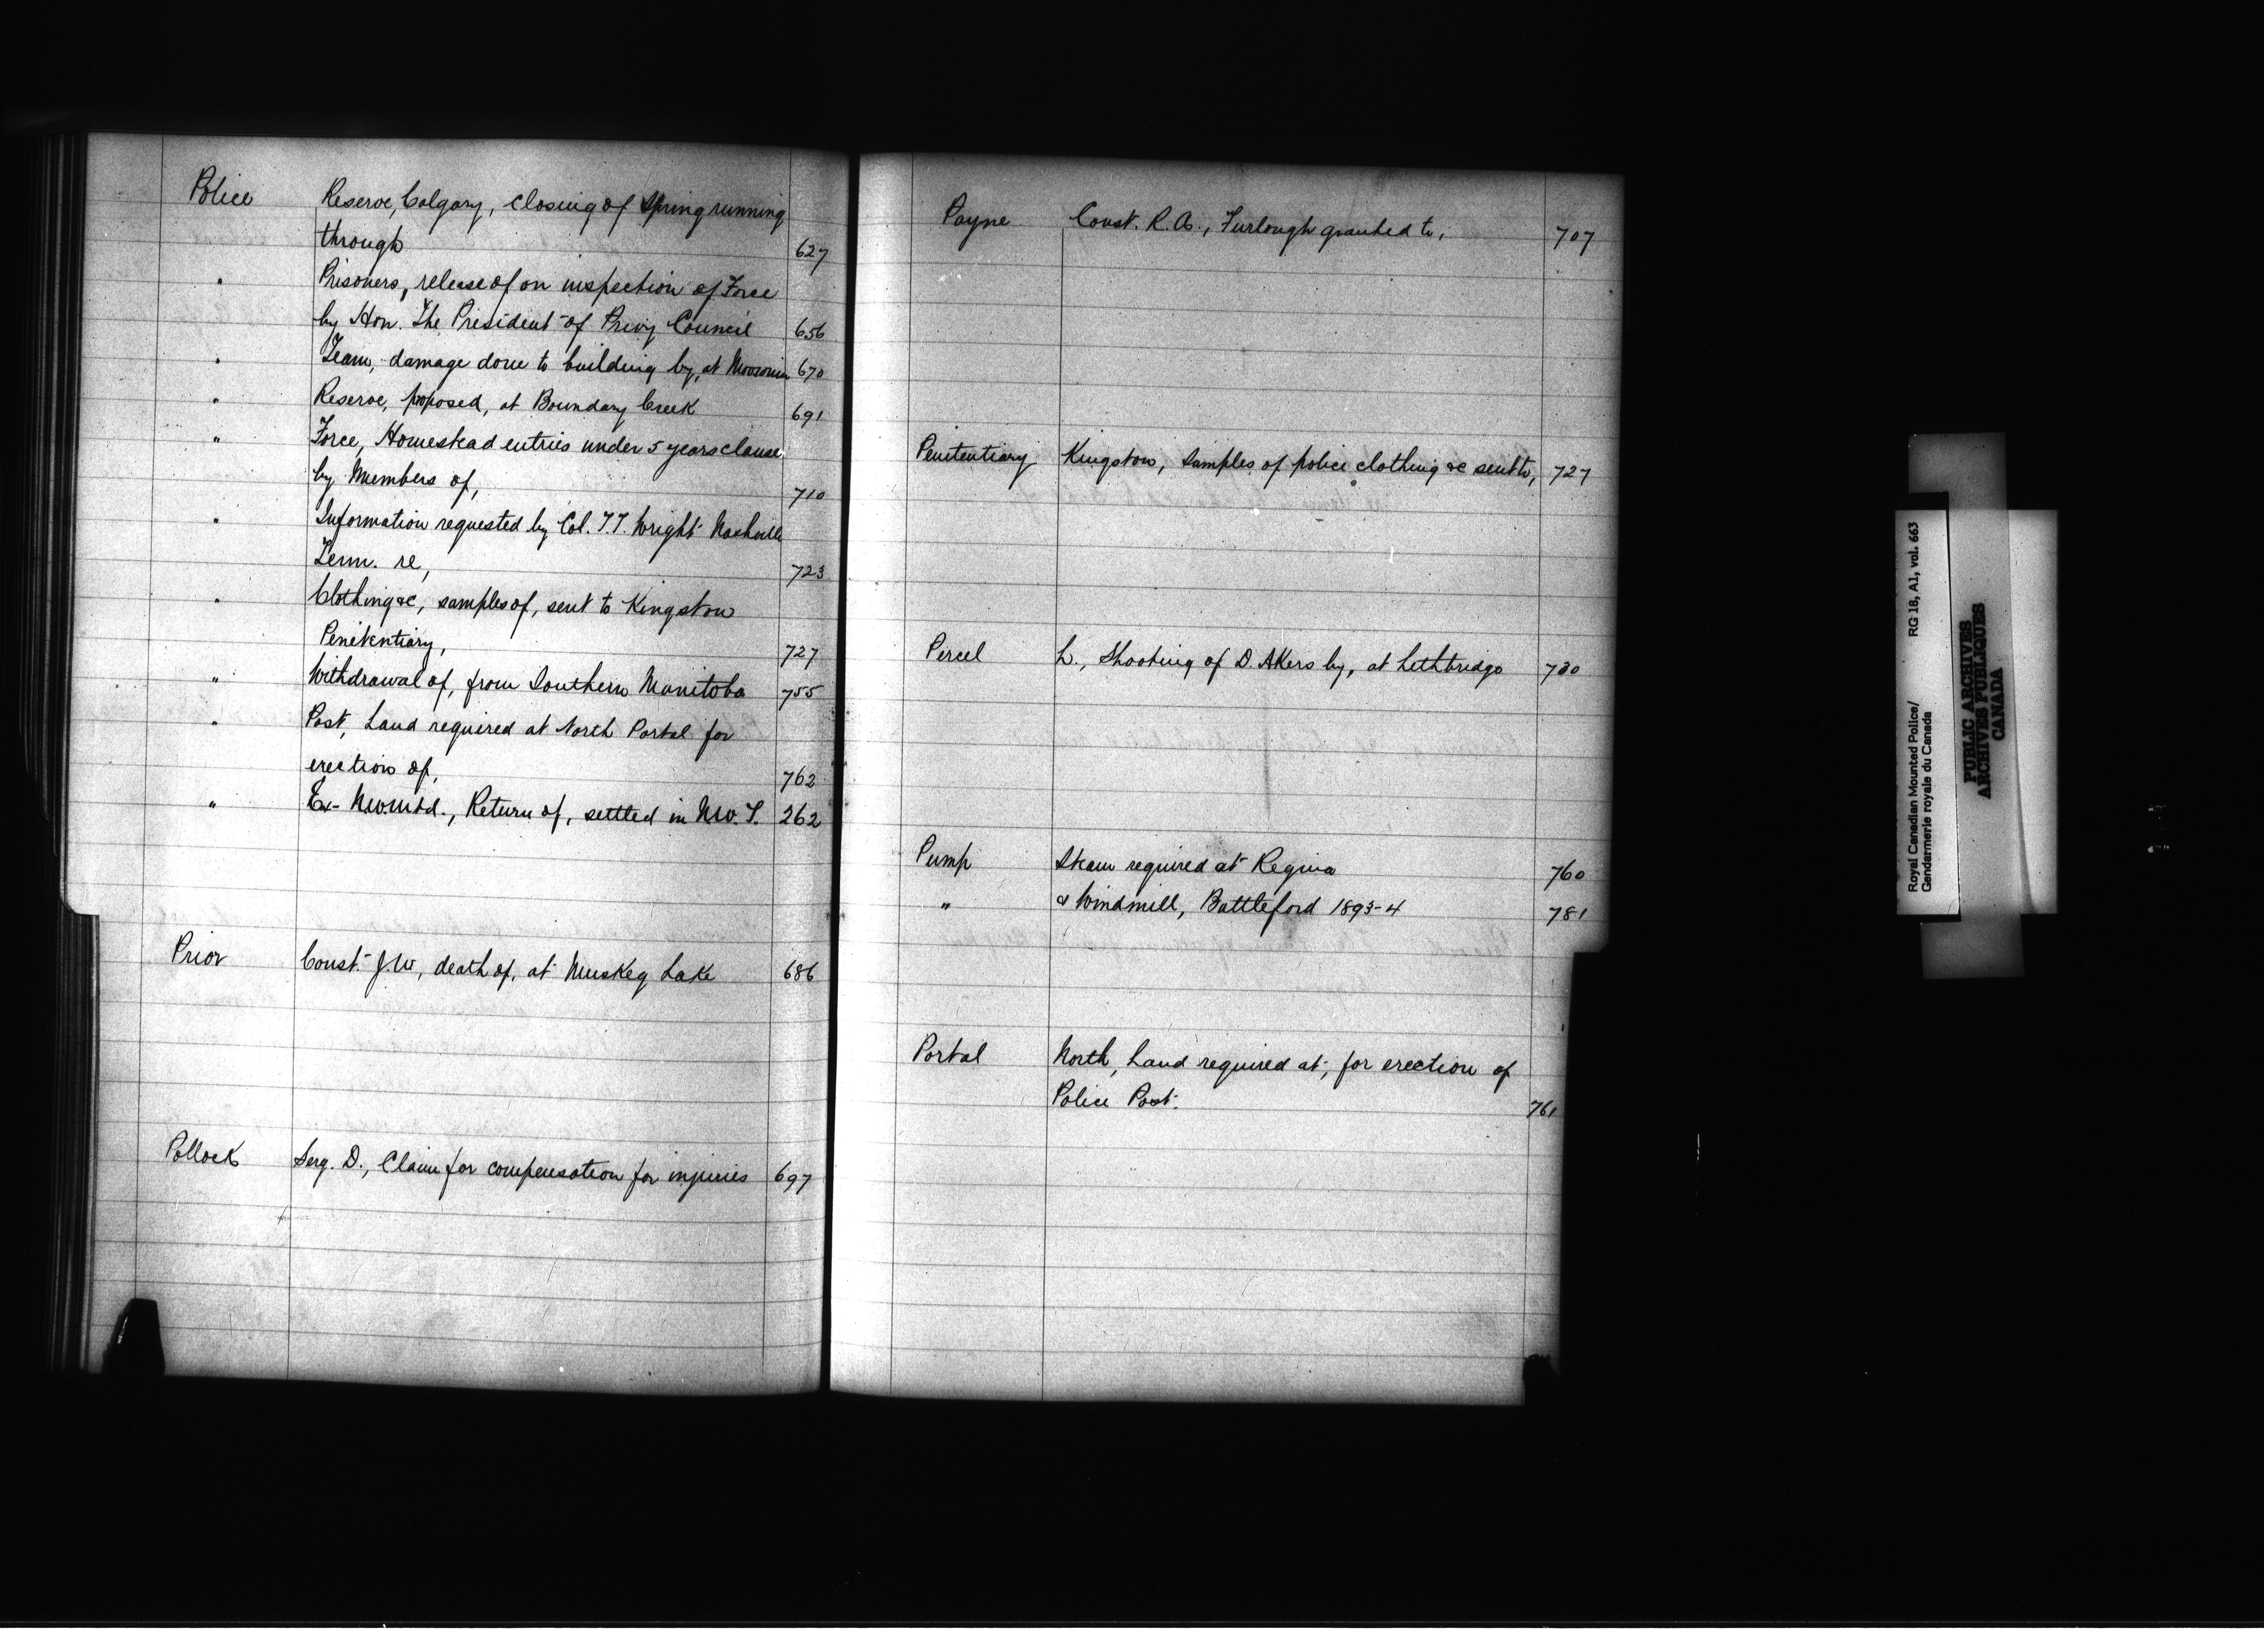 Police Reserve, Calgary, closing of Spring running
through 627
" Prisoners, release of on inspection of Force
by Hon. The President of Privy Council 656
" Team, damage done to building by, at Moosomin 670
" Reserve, proposed, at Boundary Creek 691
" Force, Homestead entries under 5 years clause
by Members of, 710
" Information requested by Col. T.T. Wright Nashville
Tenn. re, 723
" Clothing &c, samples of, sent to Kingston
Penitentiary, 727
" Withdrawal of, from Southern Manitoba 755
" Post, Land required at North Portal for
erection of, 762
" Ex- N.W.Mtd., Return of, settled in N.W.T. 262
Prior Const. J.W, death of, at Muskeg Lake 686
Pollock Serg. D., Claim for compensation for injuries 697
Payne Const. R.A., Furlough granted to, 707
Penitentiary Kingston, Samples of police clothing &c sent to, 727
Percel L., Shooting of D. Akers by, at Lethbridge 730
Pump Steam required at Regina 760
" & Windmill, Battleford 1893-4 781
Portal North, Land required at, for erection of
Police Post. 761
Royal Canadian Mounted Police/
Gendarmerie royale du Canada
RG 18, A1, vol. 663
PUBLIC ARCHIVES
ARCHIVES PUBLIQUES
CANADA